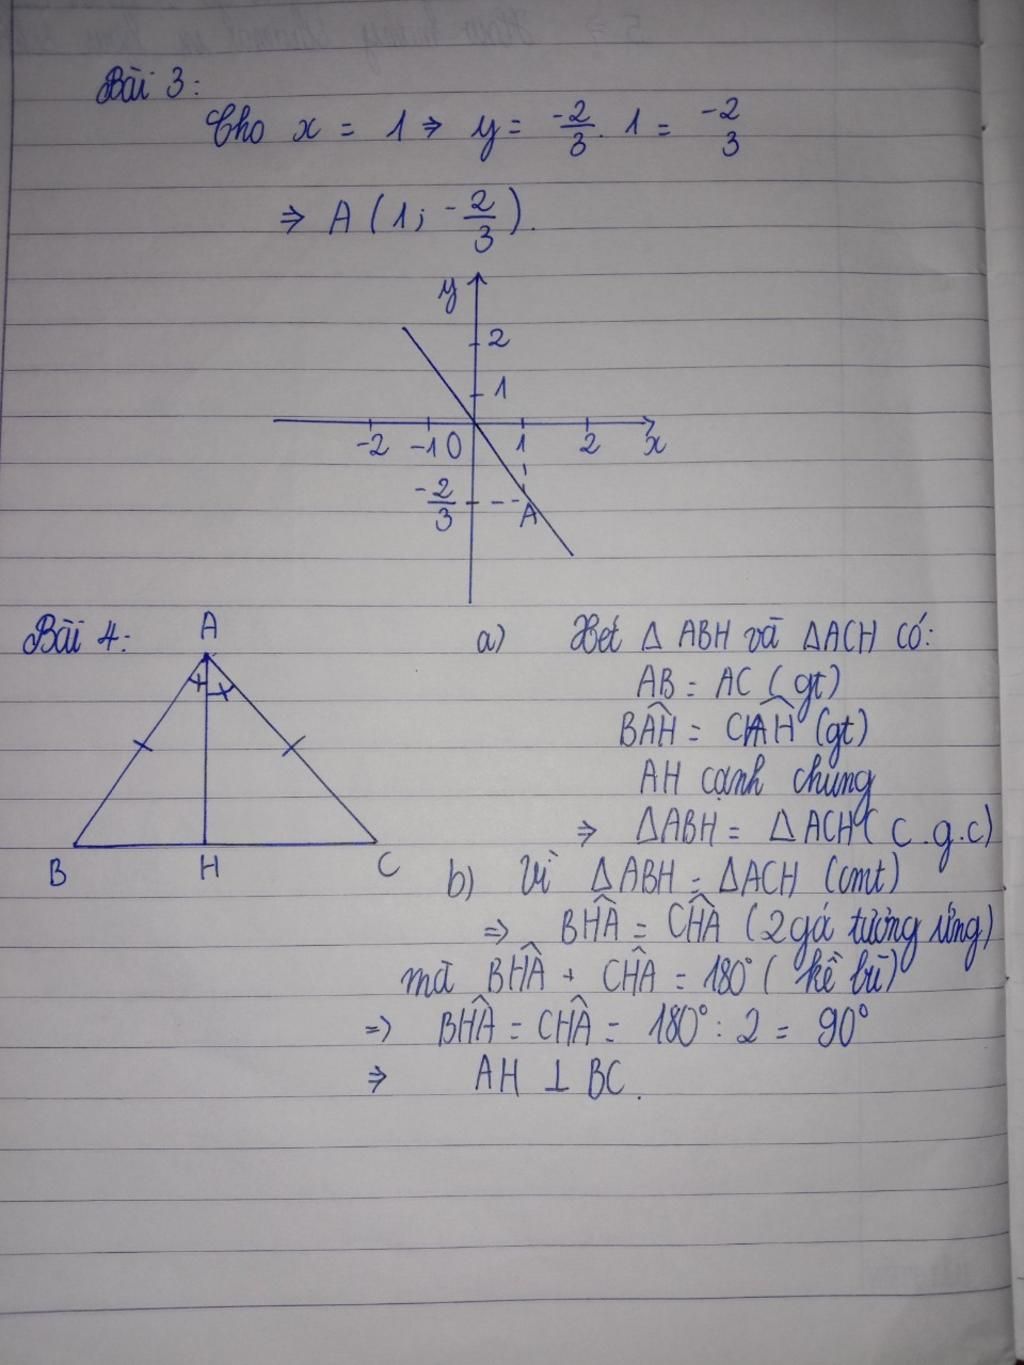 Bài 3:
Cho x = 1 ⇒ y = -2/3 . 1 = -2/3
⇒ A (1; -2/3).
y
2
1
-2 -1 0 1 2 x
-2/3
A
Bài 4:
A
B H C
a) Xét Δ ABH và ΔACH có:
AB = AC (gt)
BÂH = CÂH (gt)
AH cạnh chung
⇒ ΔABH = Δ ACH (c.g.c)
b) Vì ΔABH = ΔACH (cmt)
⇒ BĤA = CĤA (2 gá tương ứng)
mà BĤA + CĤA = 180° (kề bù)
⇒ BĤA = CĤA = 180° : 2 = 90°
⇒ AH ⊥ BC.